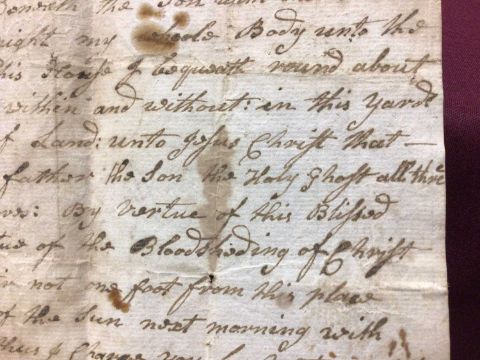 Beneath the Son
right my whole Body unto the
this House I bequeath round about
within and without: in this Yard
f Land: unto Jesus Christ that —
father the Son the Holy Ghost all thre
res: By vertue of this Blissed
tue of the Bloodsheding of Christ
ir not one foot from this place
of the Sun next morning with
thus I Charge you